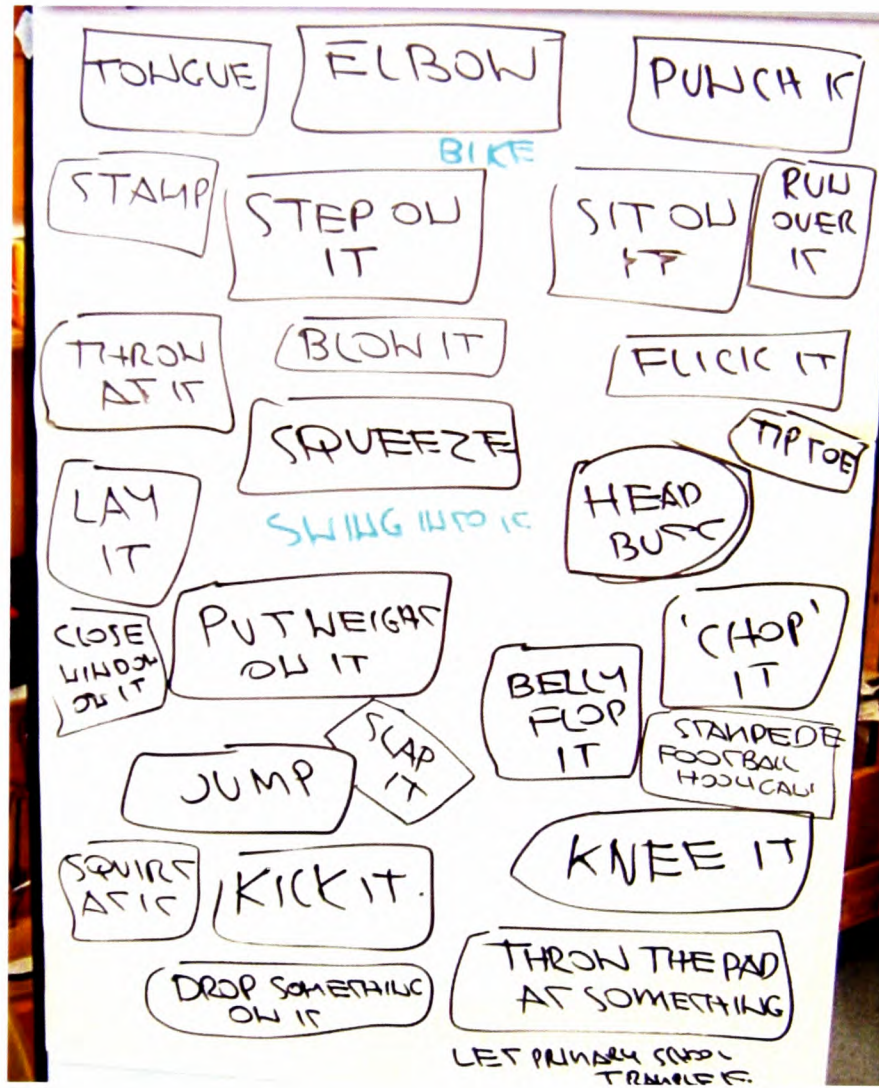 TONGUE
ELBOW
PUNCH IT
BIKE
STAMP
STEP ON
IT
SIT ON
IT
RUN
OVER
IT
THROW
AT IT
BLOW IT
FLICK IT
SQUEEZE
TIP TOE
LAY
IT
SWING INTO IT
HEAD
BUTT
CLOSE
WINDOW
ON IT
PUT WEIGHT
ON IT
'CHOP'
IT
BELLY
FLOP
IT
SLAP
IT
STAMPEDE
FOOTBALL
JUMP
SQUIRT
AT IT
KICK IT.
KNEE IT
DROP SOMETHING
ON IT
THROW THE PAD
AT SOMETHING
LET PRIMARY SCHOOL
TRAMPLE IT.